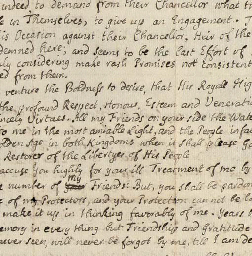 indeed to demand from their Chancellor what t
e in Themselves, to give up an Engagement.
is Occation against their Chancellor, Heir of the
demned here; and seems to be the last Effort of
ly considering make rash Promises not consistent
ed from them.
venture the Boldness to desire, that His Royal Hig
the profound Respect, Honour, Esteem and Venerat
incely Virtues. All my Friends on your side the Wate
to me in the most amiable light, and the People in fac
olden Age in both Kingdoms when it shall please G
Restorer of the Libertyes of His People
accuse you highly for your ill Treatment of me by
e number of my Friends: But, you shall be pardon
e of my Protectors, and your Protection can not be l
make it up in thinking favorably of me. Years
emory in every thing but Friendship and gratitude
ever seen, will never be forgot by me, till I am de